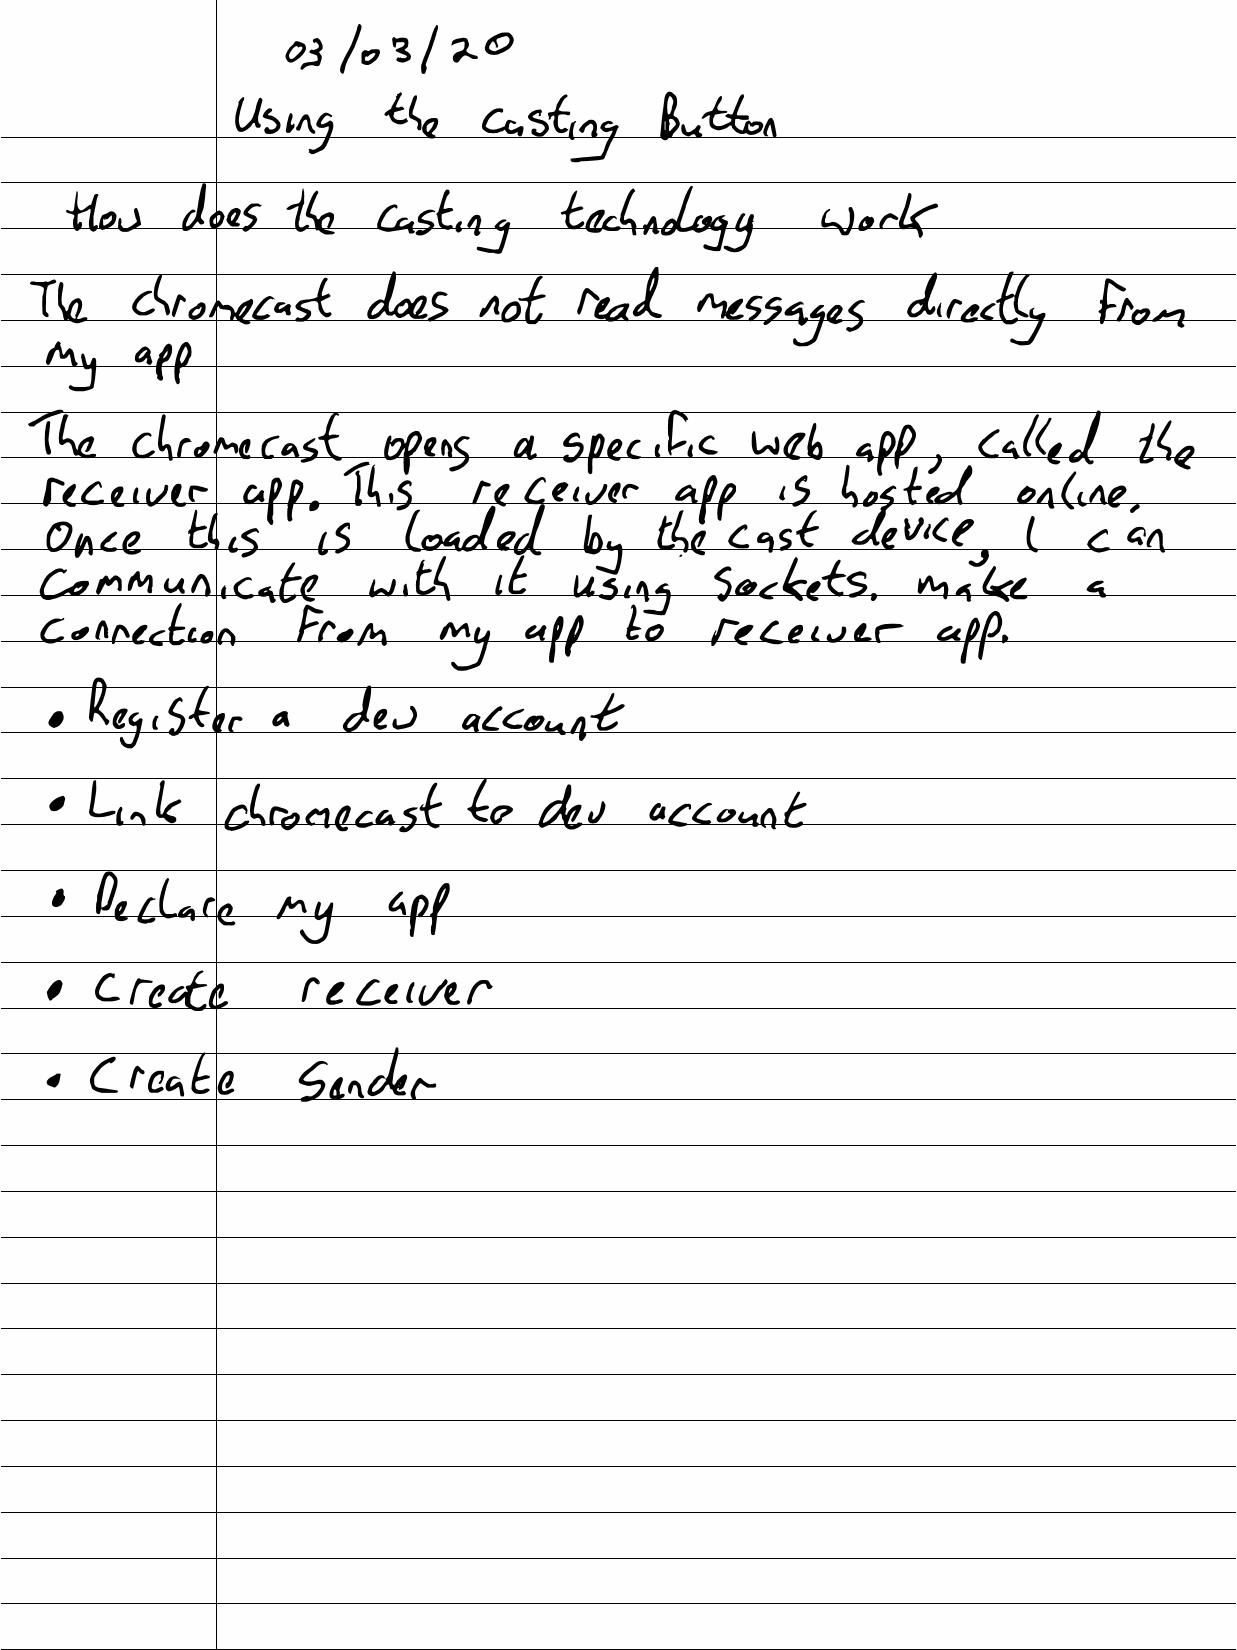 03/03/20
Using the casting Button
How does the casting technology work
The chromecast does not read messages directly from
my app
The chromecast opens a specific web app, called the
receiver app. This receiver app is hosted online.
Once this is loaded by the cast device, I can
communicate with it using sockets. make a
connection from my app to receiver app.
• Register a dev account
• Link chromecast to dev account
• Declare my app
• Create receiver
• Create Sender